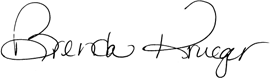 Brenda Krueger